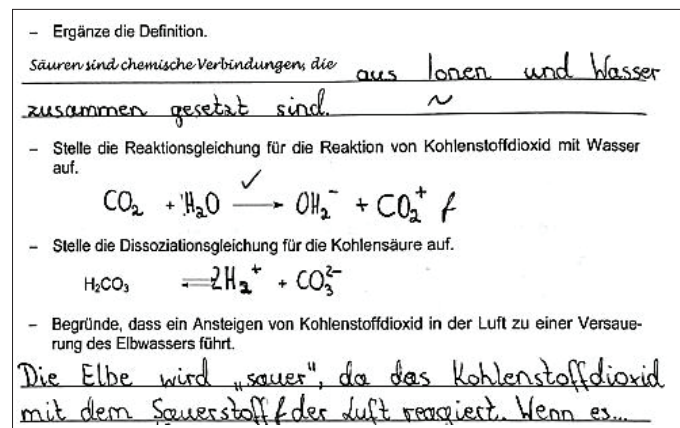 – Ergänze die Definition.
Säuren sind chemische Verbindungen, die aus Ionen und Wasser
zusammen gesetzt sind. ~
– Stelle die Reaktionsgleichung für die Reaktion von Kohlenstoffdioxid mit Wasser
auf.
CO₂ + H₂O ⟶ OH₂⁻ + CO₂⁺ f
– Stelle die Dissoziationsgleichung für die Kohlensäure auf.
H₂CO₃ ⇌ 2H₂⁺ + CO₃²⁻
– Begründe, dass ein Ansteigen von Kohlenstoffdioxid in der Luft zu einer Versaue-
rung des Elbwassers führt.
Die Elbe wird „sauer", da das Kohlenstoffdioxid
mit dem Sauerstoff f der Luft reagiert. Wenn es...